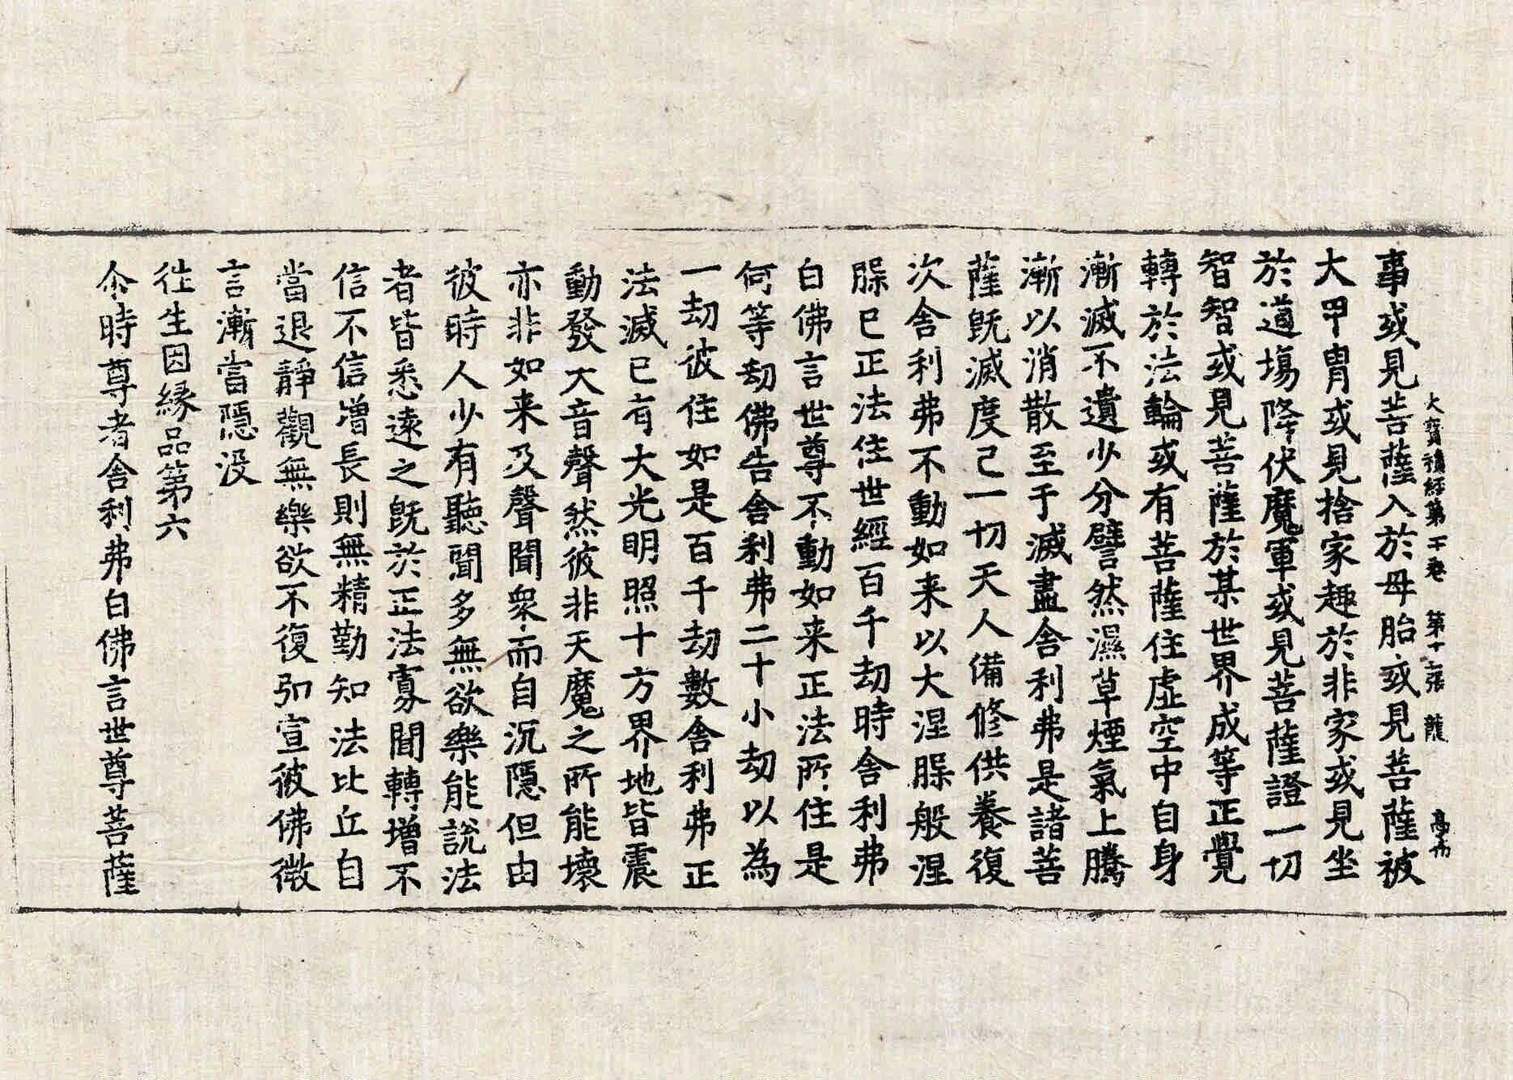 大寶積經第二十卷 第十二張 龍
事或見菩薩入於母胎或見菩薩被
大甲冑或見捨家趣於非家或見坐
於道場降伏魔軍或見菩薩證一切
智智或見菩薩於某世界成等正覺
轉於法輪或有菩薩住虛空中自身
漸滅不遺少分譬然濕草煙氣上騰
漸以消散至于滅盡舍利弗是諸菩
薩旣滅度已一切天人備修供養復
次舍利弗不動如来以大涅𦠆般涅
𦠆已正法住世經百千劫時舍利弗
白佛言世尊不動如来正法所住是
何等劫佛告舍利弗二十小劫以為
一劫彼住如是百千劫數舍利弗正
法滅已有大光明照十方界地皆震
動發大音聲然彼非天魔之所能壞
亦非如来及聲聞衆而自沉隱但由
彼時人少有聽聞多無欲樂能說法
者皆悉遠之旣於正法寡聞轉增不
信不信增長則無精勤知法比丘自
當退靜觀無樂欲不復弘宣彼佛微
言漸當隱没
往生因緣品第六
尒時尊者舍利弗白佛言世尊菩薩